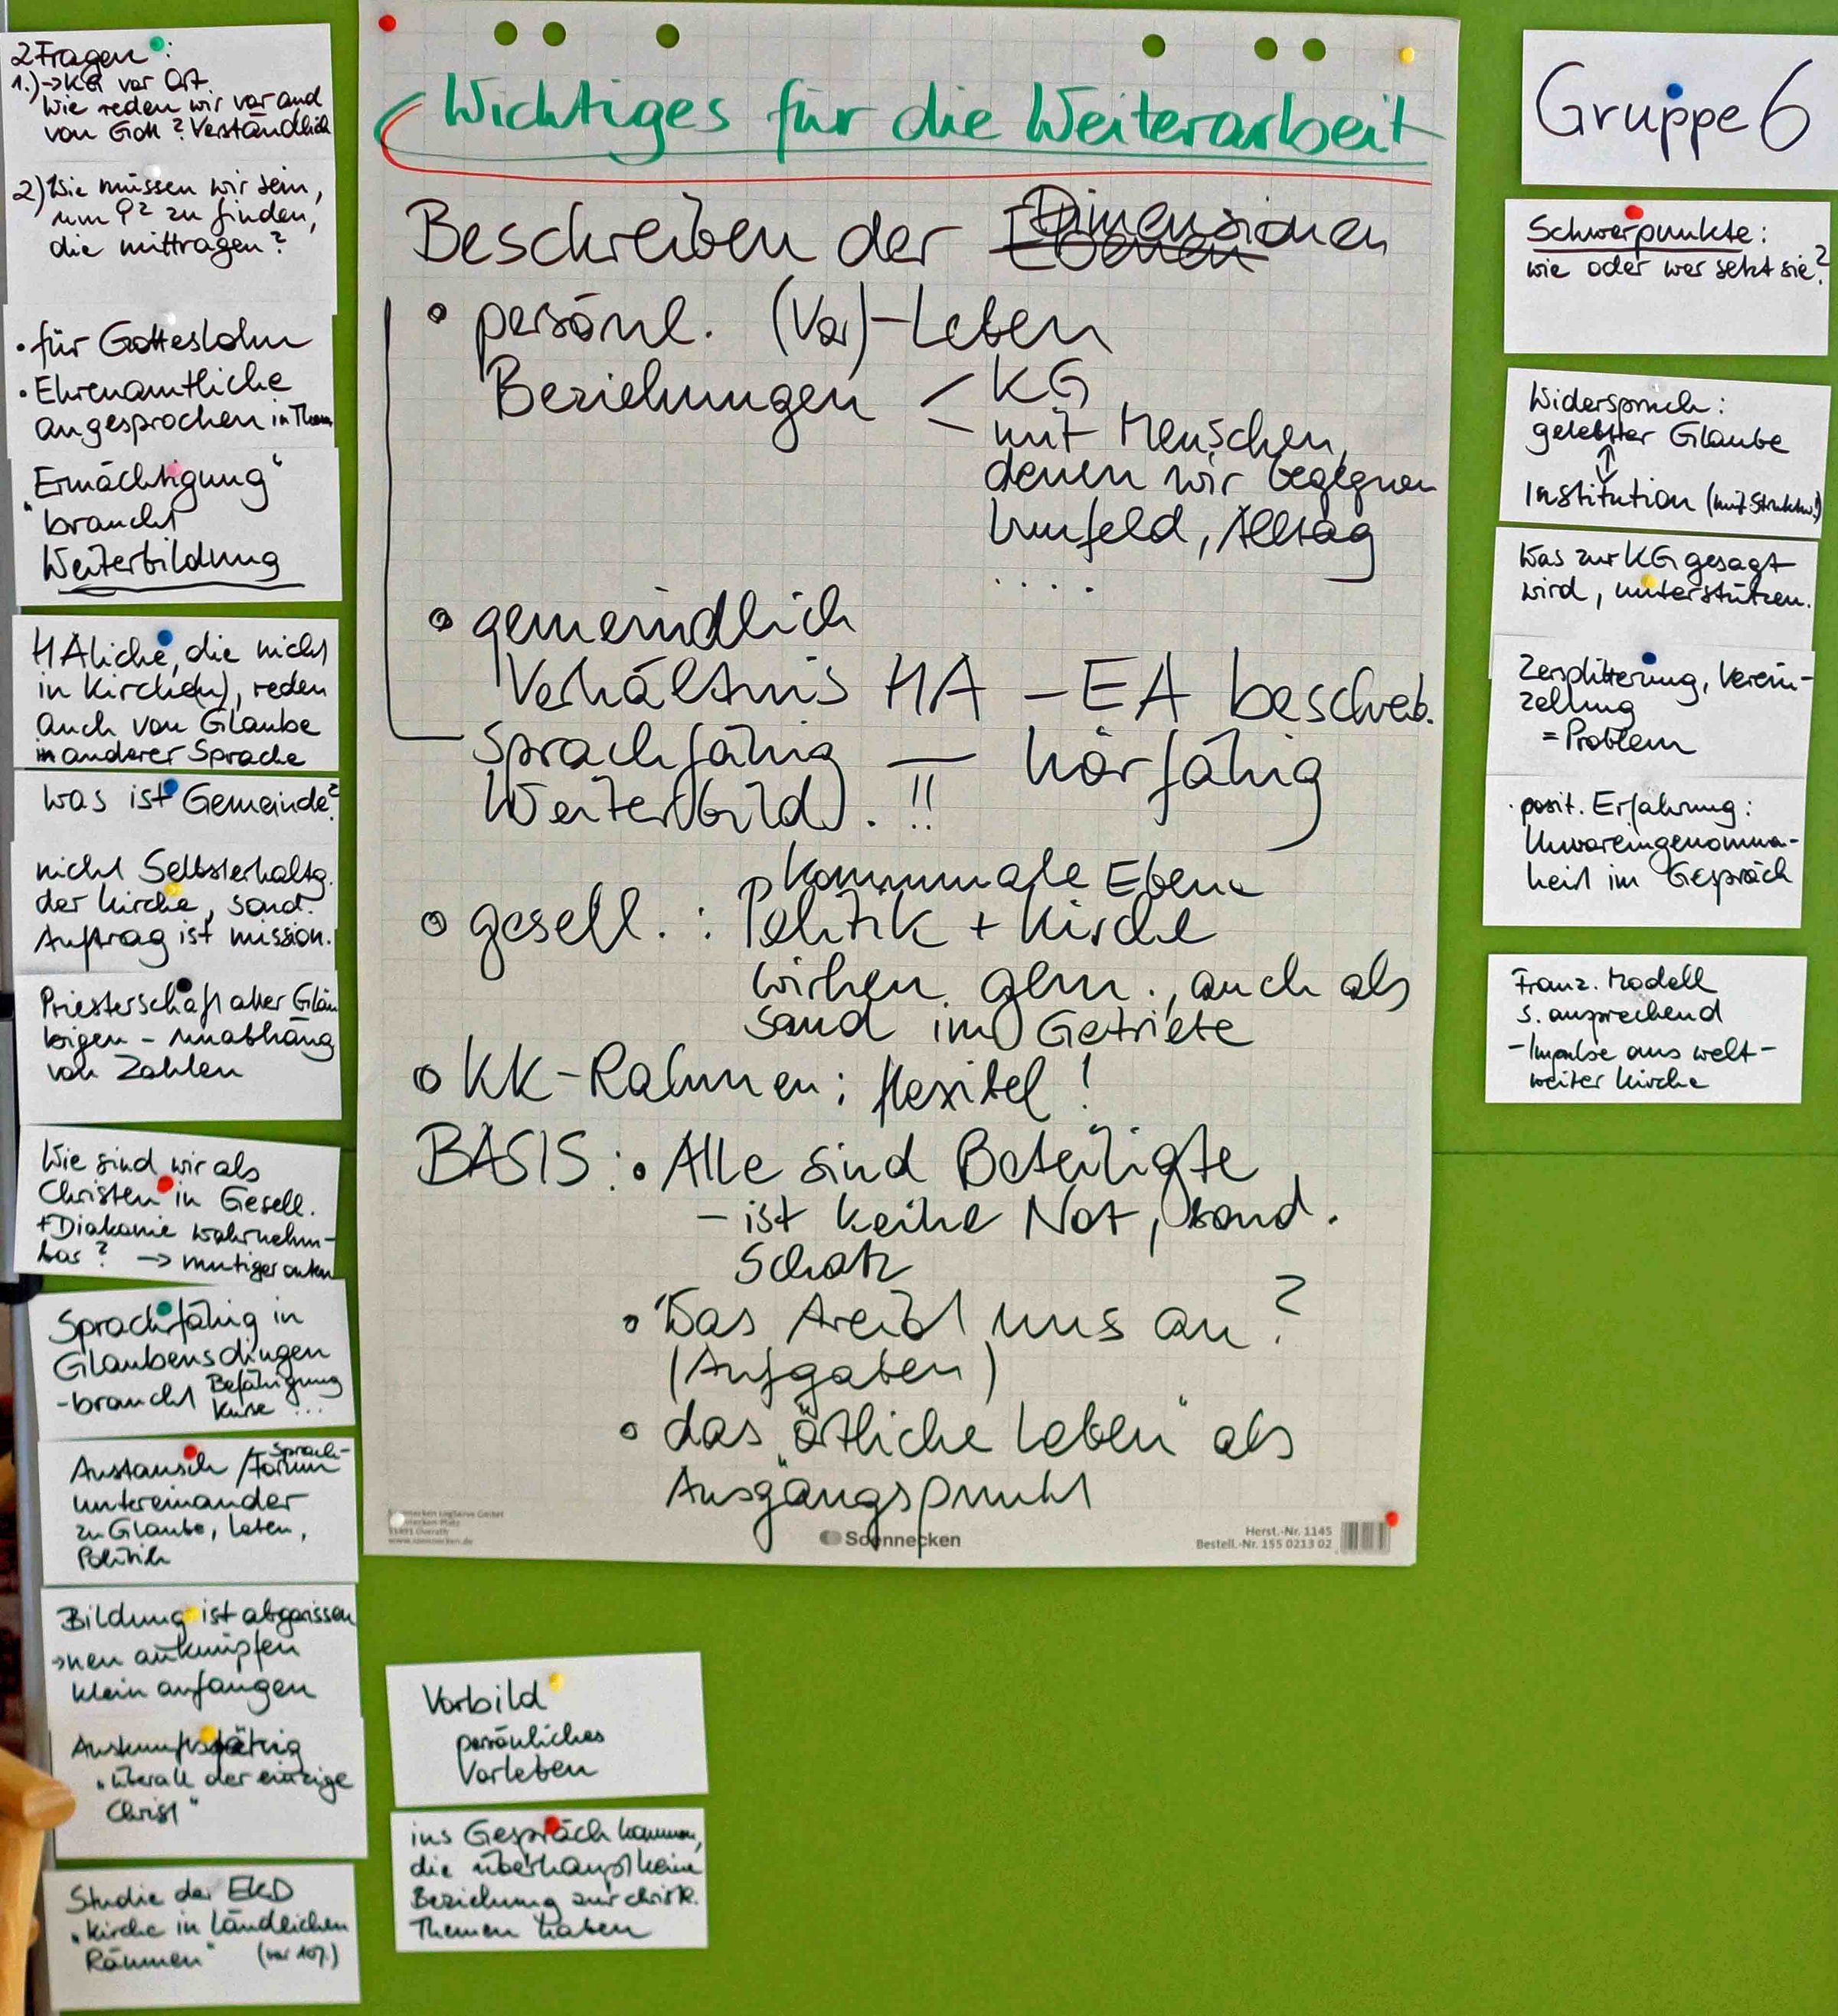 2 Fragen:
1.) → KG vor Ort
Wie reden wir vor und
von Gott? Verständlich
2) Wie müssen wir sein,
um zu finden,
die mittragen?
• für Gotteslohn
• Ehrenamtliche
angesprochen in
"Ermächtigung"
braucht
Weiterbildung
HAliche, die nicht
in Kirche(n), reden
auch von Glaube
in anderer Sprache
Was ist Gemeinde?
nicht Selbsterhaltg.
der Kirche, sond.
Auftrag ist mission.
Priesterschaft aller Gläu
bigen - unabhäng
von Zahlen
Wie sind wir als
Christen in Gesell.
+ Diakonie wahrnehm-
bar? → mutiger
Sprachfähig in
Glaubensdingen
- braucht Befähigung
Kurse ...
Austausch / Sprach-
Forum
untereinander
zu Glaube, Leben,
Politik
Bildung ist abgerissen
→ neu anknüpfen
klein anfangen
Auskunftsfähig
"überall der einzige
Christ"
Studie der EKD
"Kirche in Ländlichen
Räumen" (vor 10J.)
Wichtiges für die Weiterarbeit
Beschreiben der Ebenen Dimensionen
• persönl. (Vor)-Leben
Beziehungen < KG
mit Menschen,
denen wir begegnen
Umfeld, Alltag
....
• gemeindlich
Verhältnis HA - EA beschreib.
Sprachfähig — hörfähig
Weiter(bild). !!
kommunale Ebene
• gesell. : Politik + Kirche
wirken gem., auch als
Sand im Getriebe
• KK-Rahmen: flexibel!
BASIS: • Alle sind Beteiligte
- ist keine Not, sond.
Schatz
• Was treibt uns an?
(Aufgaben)
• das "örtliche Leben" als
Ausgangspunkt
Soennecken
Herst.-Nr. 1145
Bestell.-Nr. 155 0213 02
Vorbild
persönliches
Vorleben
ins Gespräch kommen,
die überhaupt keine
Beziehung zur christl.
Themen haben
Gruppe 6
Schwerpunkte:
wie oder wer setzt sie?
Widerspruch:
gelebter Glaube
↕
Institution (mit Struktur!)
Was zur KG gesagt
wird, unterstützen.
Zersplitterung, Verein-
zelung
= Problem
• posit. Erfahrung:
Unvoreingenommen-
heit im Gespräch
Franz. Modell
s. ansprechend
- Impulse aus welt-
weiter Kirche